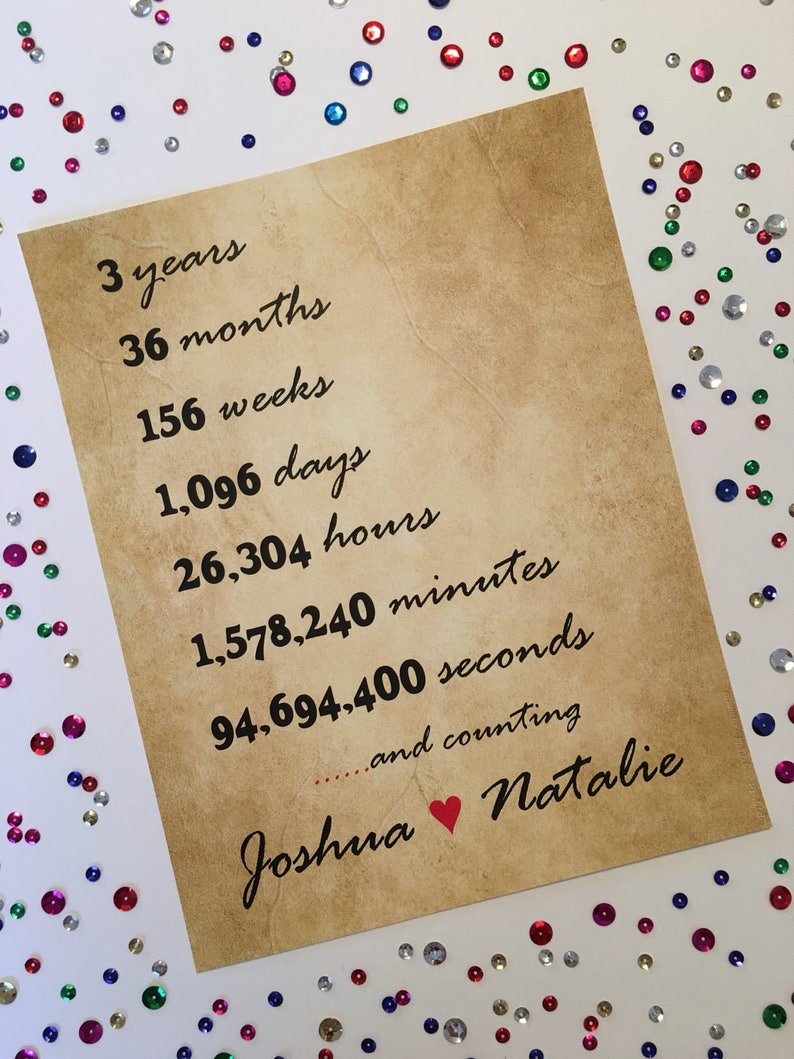 3 years
36 months
156 weeks
1,096 days
26,304 hours
1,578,240 minutes
94,694,400 seconds
......and counting
Joshua ♥ Natalie